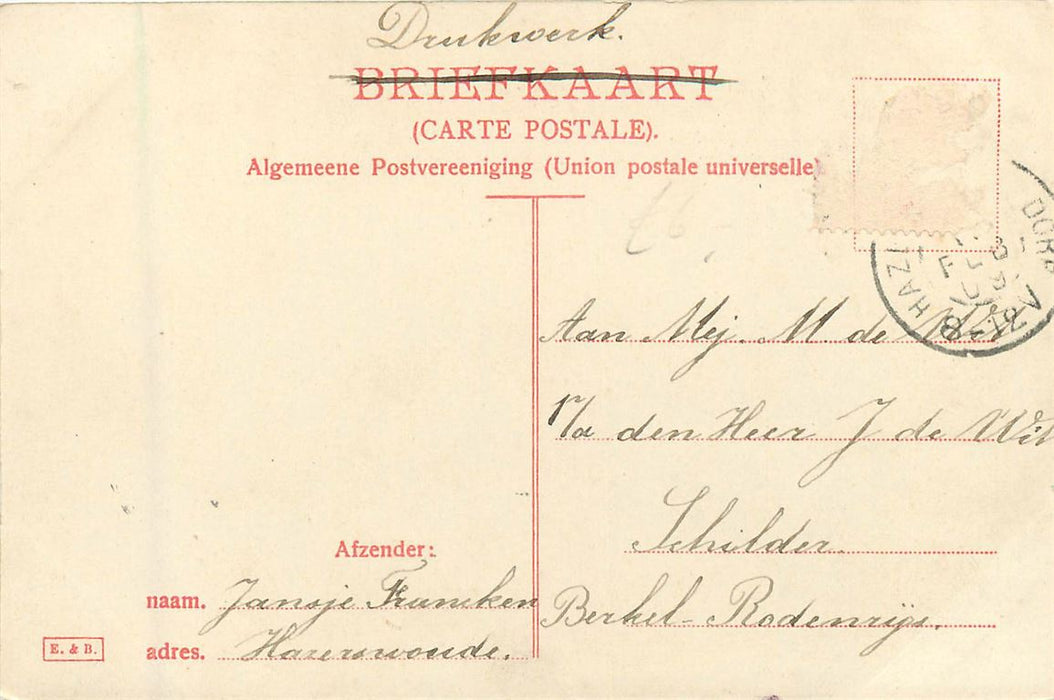 Drukwerk.
BRIEFKAART
(CARTE POSTALE).
Algemeene Postvereeniging (Union postale universelle)
HAZ DOR
FEB
8-12V
Aan Mej. M de Wit
p/a den Heer J de Wit
Schilder.
Berkel-Rodenrijs.
Afzender:
naam. Jansje Francken
adres. Hazerswoude.
E. & B.